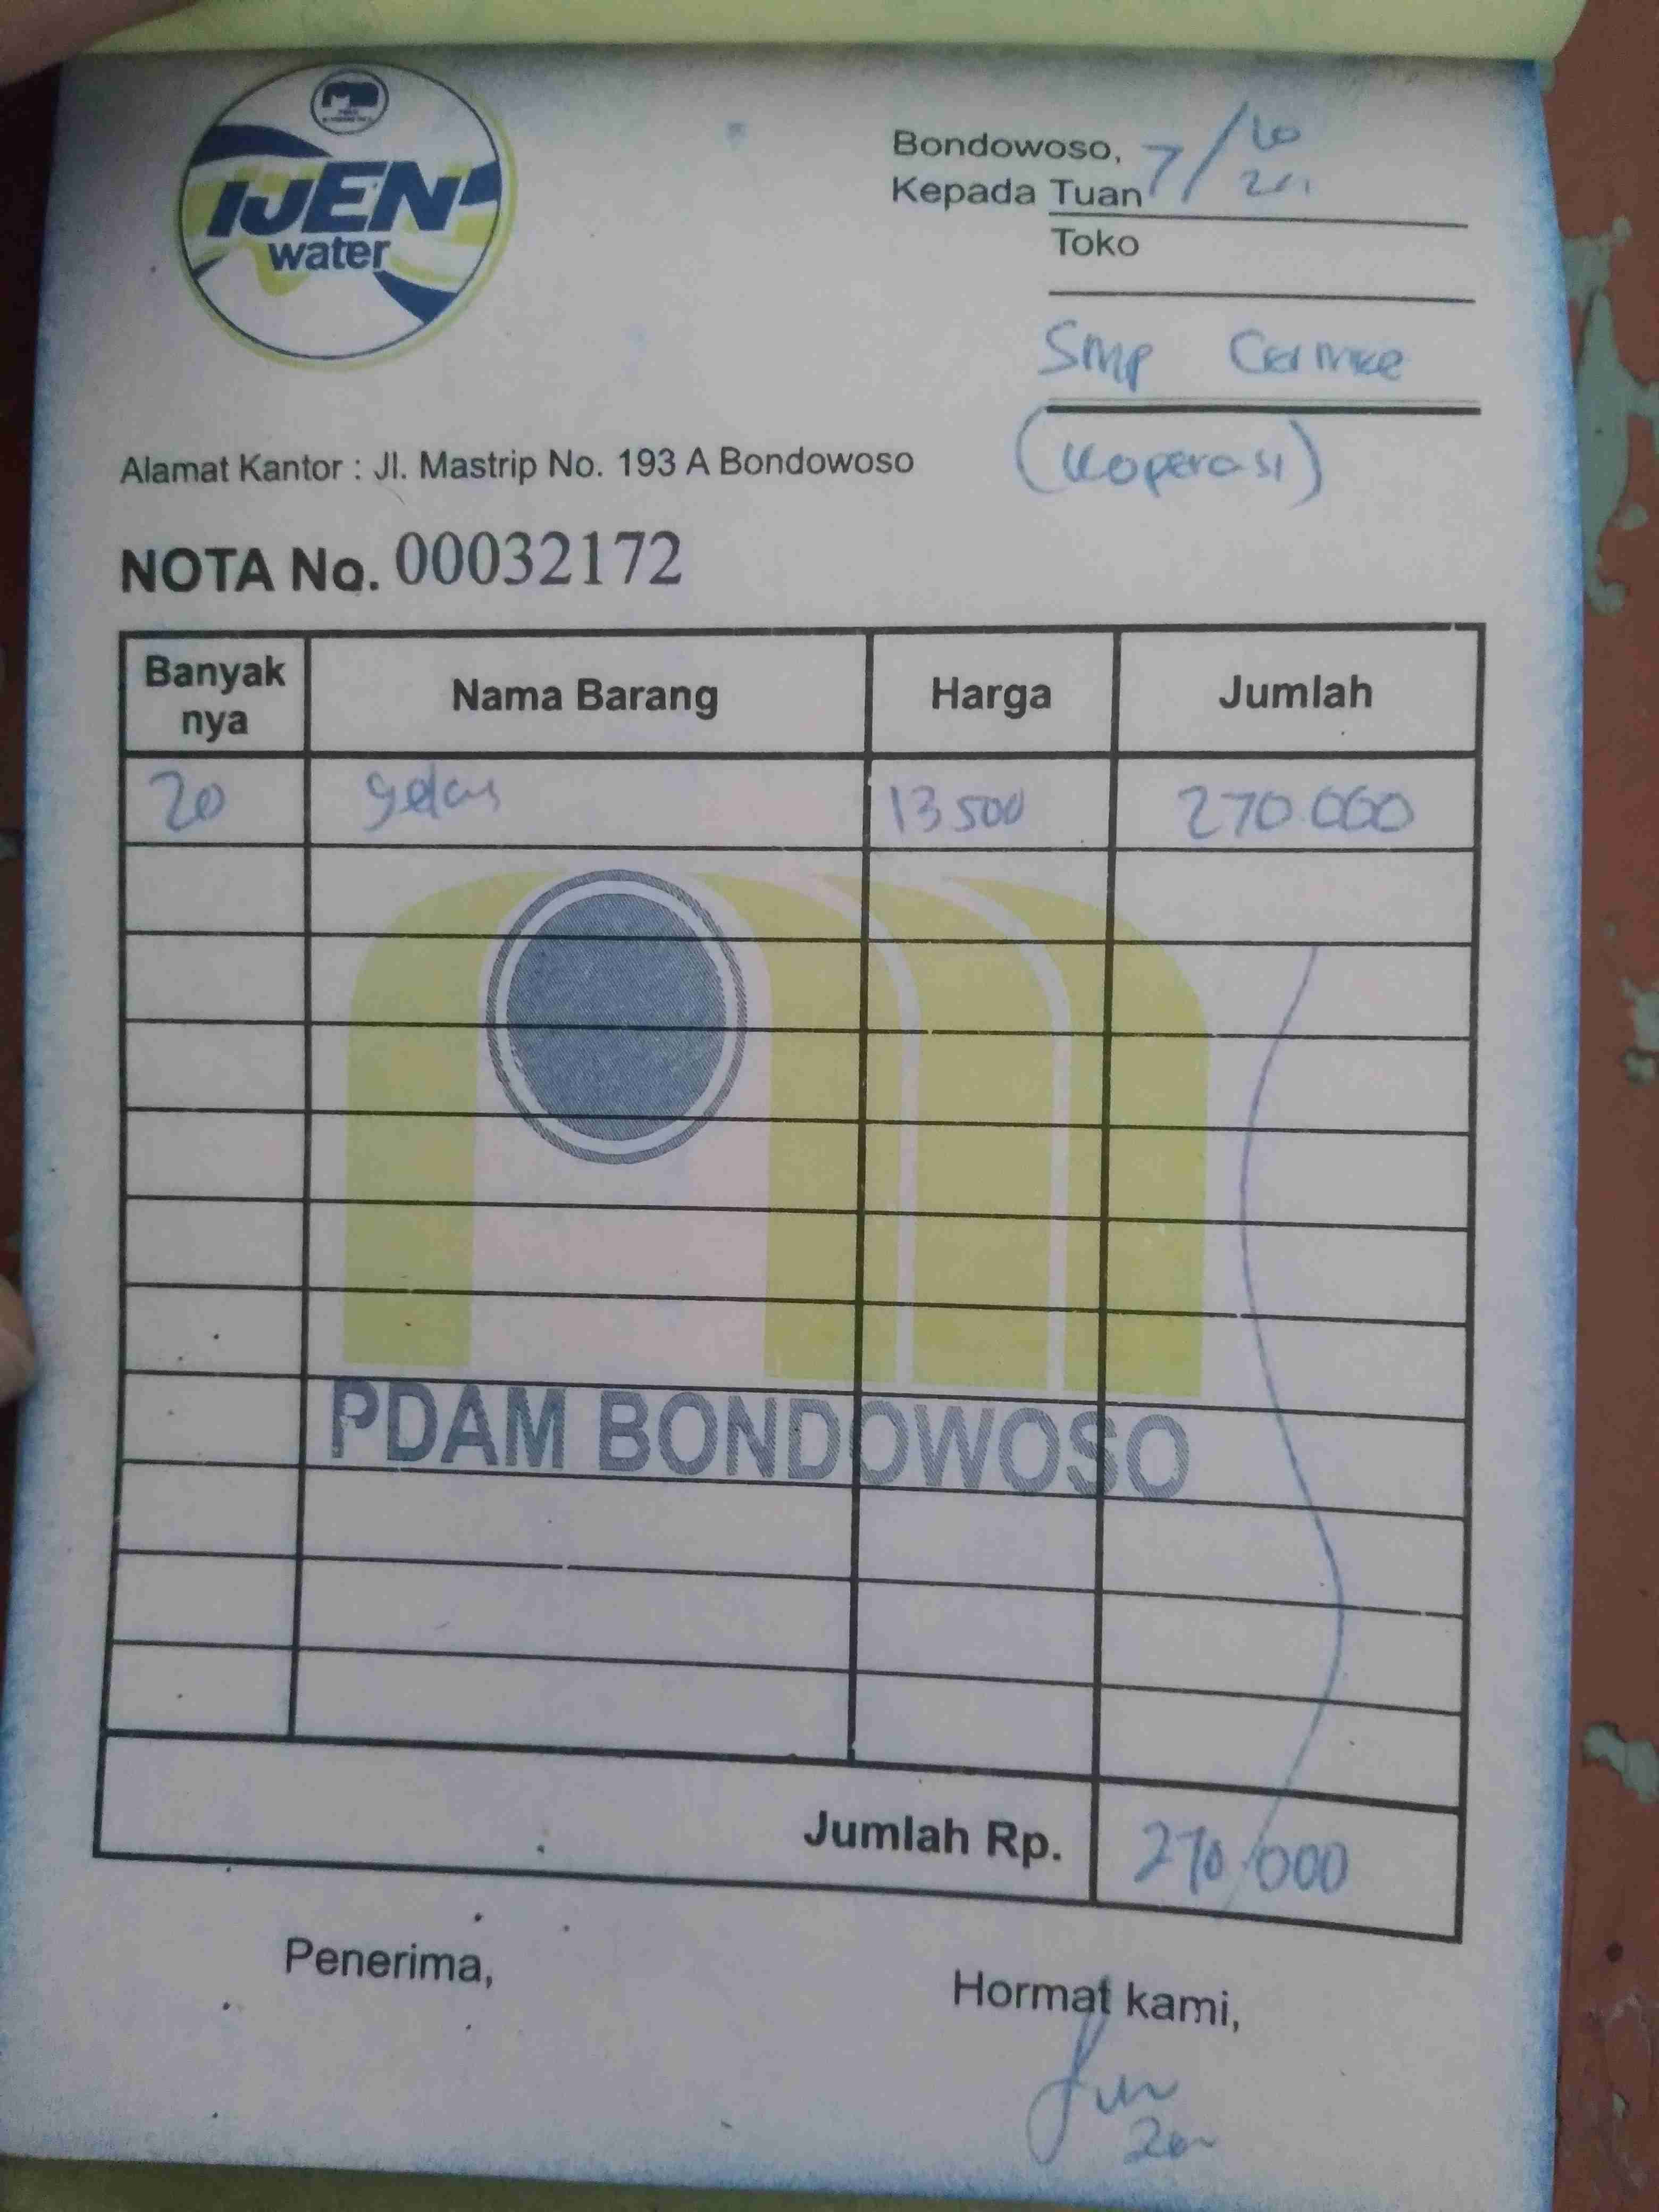 IJEN
water
Bondowoso, 7/10
Kepada Tuan
Toko
Smp Cermee
(Koperasi)
Alamat Kantor : Jl. Mastrip No. 193 A Bondowoso
NOTA No. 00032172
Banyak nya Nama Barang Harga Jumlah
20 gelas 13 500 270.000
PDAM BONDOWOSO
Jumlah Rp. 270.000
Penerima,
Hormat kami,